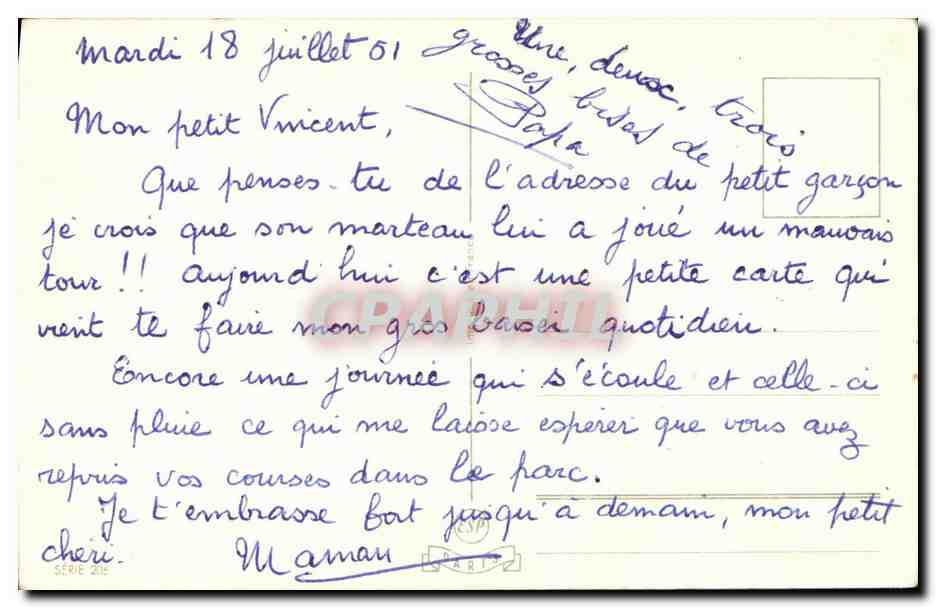 Mardi 18 juillet 61
Une, deux, trois
grosses bises de
Papa
Mon petit Vincent,
Que penses-tu de l'adresse du petit garçon
je crois que son marteau lui a joué un mauvais
tour!! Aujourd'hui c'est une petite carte qui
vient te faire mon gros baiser quotidien.
CPAPHIL
Encore une journée qui s'écoule et celle-ci
sans pluie ce qui me laisse espérer que vous avez
repris vos courses dans le parc.
Je t'embrasse fort jusqu'à demain, mon petit
chéri. Maman
ESP
PARIS
SÉRIE 205